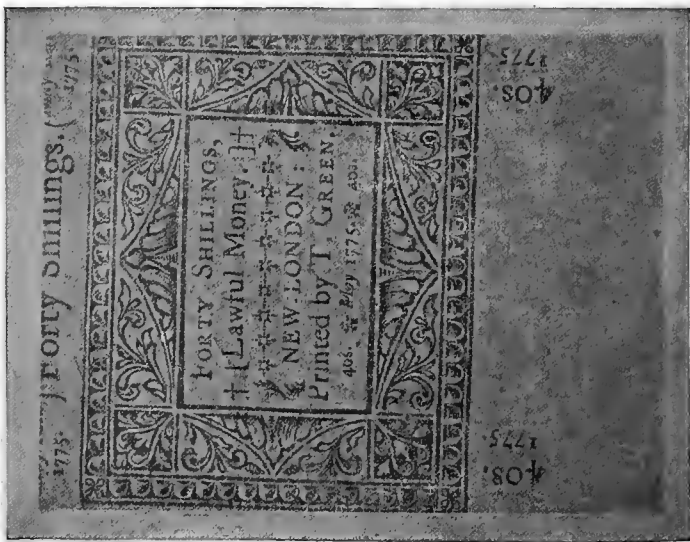 Forty Shillings. (
1775. 1775.
FORTY SHILLINGS,
† [Lawful Money.] †
NEW LONDON:
Printed by T GREEN,
40s. May 1775. 40s.
1775 1775
40s. 40s.